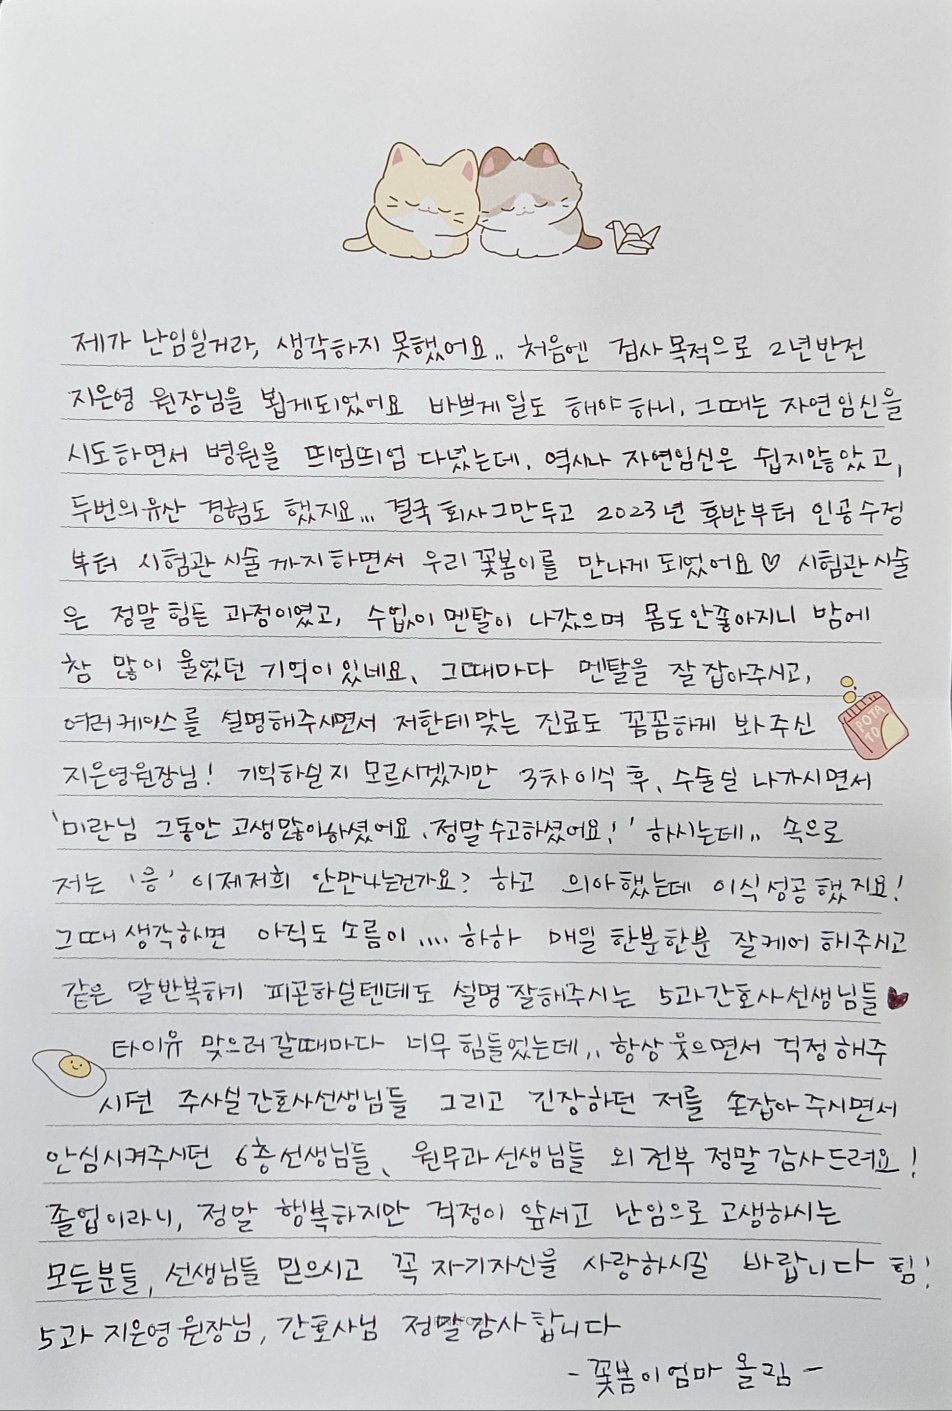 제가 난임일거라, 생각하지 못했어요.. 처음엔 검사목적으로 2년반전
지은영 원장님을 뵙게되었어요 바쁘게일도 해야하니, 그때는 자연임신을
시도하면서 병원을 띄엄띄엄 다녔는데, 역시나 자연임신은 쉽지않았고,
두번의유산 경험도 했지요... 결국회사그만두고 2023년 후반부터 인공수정
부터 시험관시술까지하면서 우리꽃봄이를 만나게되었어요♡ 시험관시술
은 정말힘든 과정이였고, 수없이멘탈이 나갔으며 몸도안좋아지니 밤에
참 많이 울었던 기억이있네요, 그때마다 멘탈을 잘잡아주시고,
여러케이스를 설명해주시면서 저한테맞는 진료도 꼼꼼하게 봐주신
POTA
TO
지은영원장님! 기억하실지 모르시겠지만 3차이식 후, 수술실 나가시면서
'미란님 그동안 고생많이하셨어요, 정말수고하셨어요!' 하시는데.. 속으로
저는 '응' 이제저희 안만나는건가요? 하고 의아했는데 이식성공했지요!
그때생각하면 아직도 소름이.... 하하 매일 한분한분 잘케어해주시고
같은 말반복하기 피곤하실텐데도 설명잘해주시는 5과간호사선생님들♥
타이유 맞으러갈때마다 너무힘들었는데.. 항상웃으면서 걱정해주
시던 주사실간호사선생님들 그리고 긴장하던 저를 손잡아주시면서
안심시켜주시던 6층선생님들, 원무과선생님들 외전부정말감사드려요!
졸업이라니, 정말 행복하지만 걱정이 앞서고 난임으로고생하시는
모든분들, 선생님들 믿으시고 꼭자기자신을 사랑하시길 바랍니다 힘!
5과 지은영원장님, 간호사님 정말감사합니다
-꽃봄이엄마 올림-